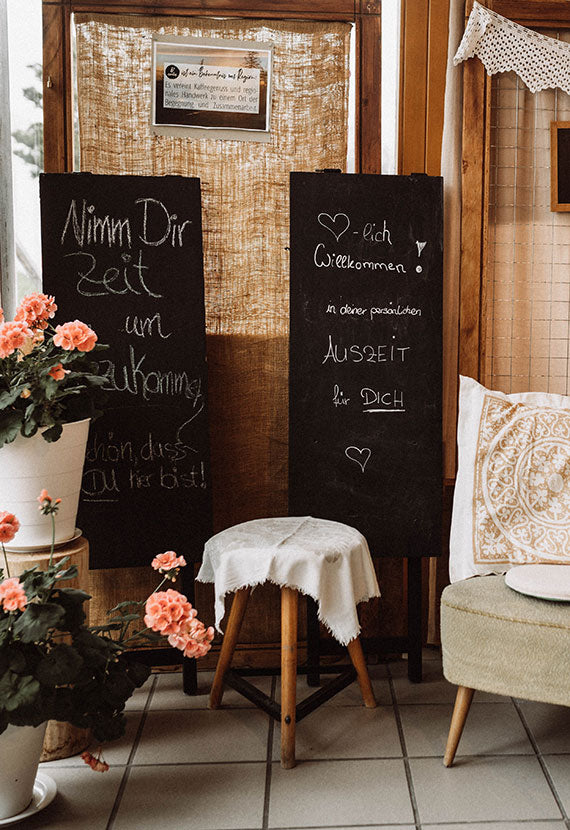 ist ein Bekenntnis zur Region.
Es vereint Kaffeegenuss und regio-
nales Handwerk zu einem Ort der
Begegnung und Zusammenarbeit.
Nimm Dir
Zeit
um
zukommen
schön, dass
Du hier bist!
♡-lich
Willkommen!
in deiner persönlichen
AUSZEIT
für DICH